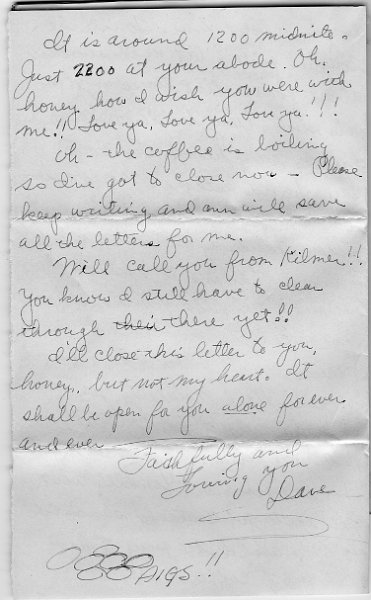 It is around 1200 midnite.
Just 2200 at your abode. Oh.
honey how I wish you were with
me!! Love ya, Love ya, Love ya!!!
Oh - the coffee is boiling
so I've got to close now - Please
keep writing and mm will save
all the letters for me.
Will call you from Kilmer!!
You know I still have to clear
through their there yet!!
I'll close this letter to you,
honey, but not my heart. It
shall be open for you alone forever
and ever
Faithfully and
Loving you
Dave
AIGS!!